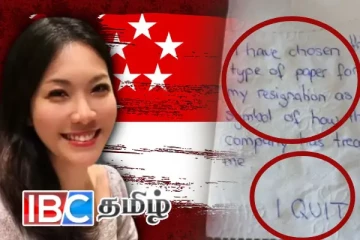 I have chosen
type of paper for
my resignation as
symbol of how
company has
me
I QUIT
IBC தமிழ்